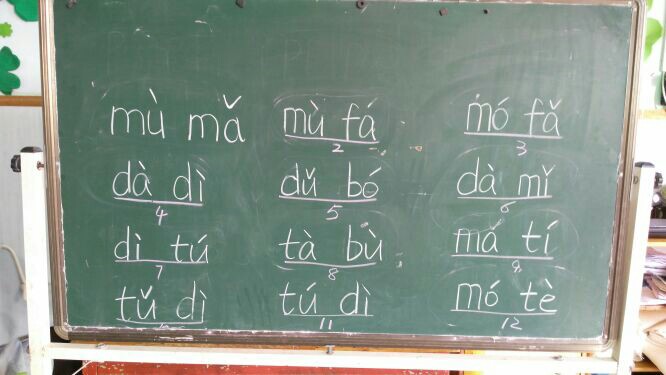 mù mǎ mù fá mó fǎ
2 3
dà dì dǔ bó dà mǐ
4 5 6
dì tú tà bù mǎ tí
7 8 9
tǔ dì tú dì mó tè
11 12